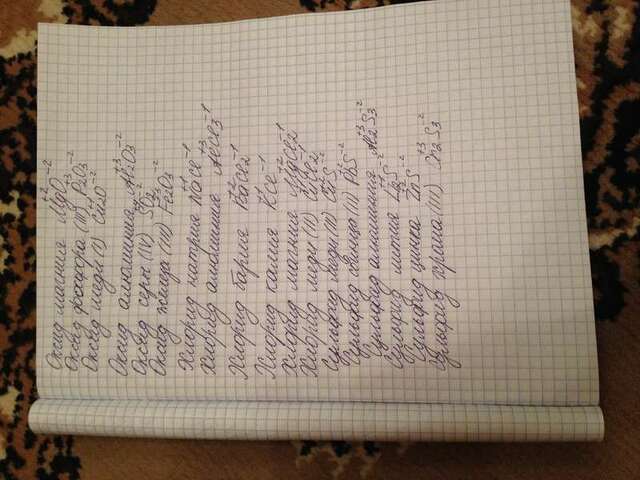 Оксид магния Mg⁺²O⁻²
Оксид фосфора (III) P₂⁺³O₃⁻²
Оксид меди (I) Cu₂⁺¹O⁻²
Оксид алюминия Al₂⁺³O₃⁻²
Оксид серы (IV) S⁺⁴O₂⁻²
Оксид железа (III) Fe₂⁺³O₃⁻²
Хлорид натрия Na⁺¹Cl⁻¹
Хлорид алюминия Al⁺³Cl₃⁻¹
Хлорид бария Ba⁺²Cl₂⁻¹
Хлорид калия K⁺¹Cl⁻¹
Хлорид магния Mg⁺²Cl₂⁻¹
Хлорид меди (II) Cu⁺²Cl₂⁻¹
Сульфид меди (II) Cu⁺²S⁻²
Сульфид свинца (II) Pb⁺²S⁻²
Сульфид алюминия Al₂⁺³S₃⁻²
Сульфид лития S⁻²
Сульфид цинка Zn⁺²S⁻²
Сульфид хрома (III) Cr₂⁺³S₃⁻²